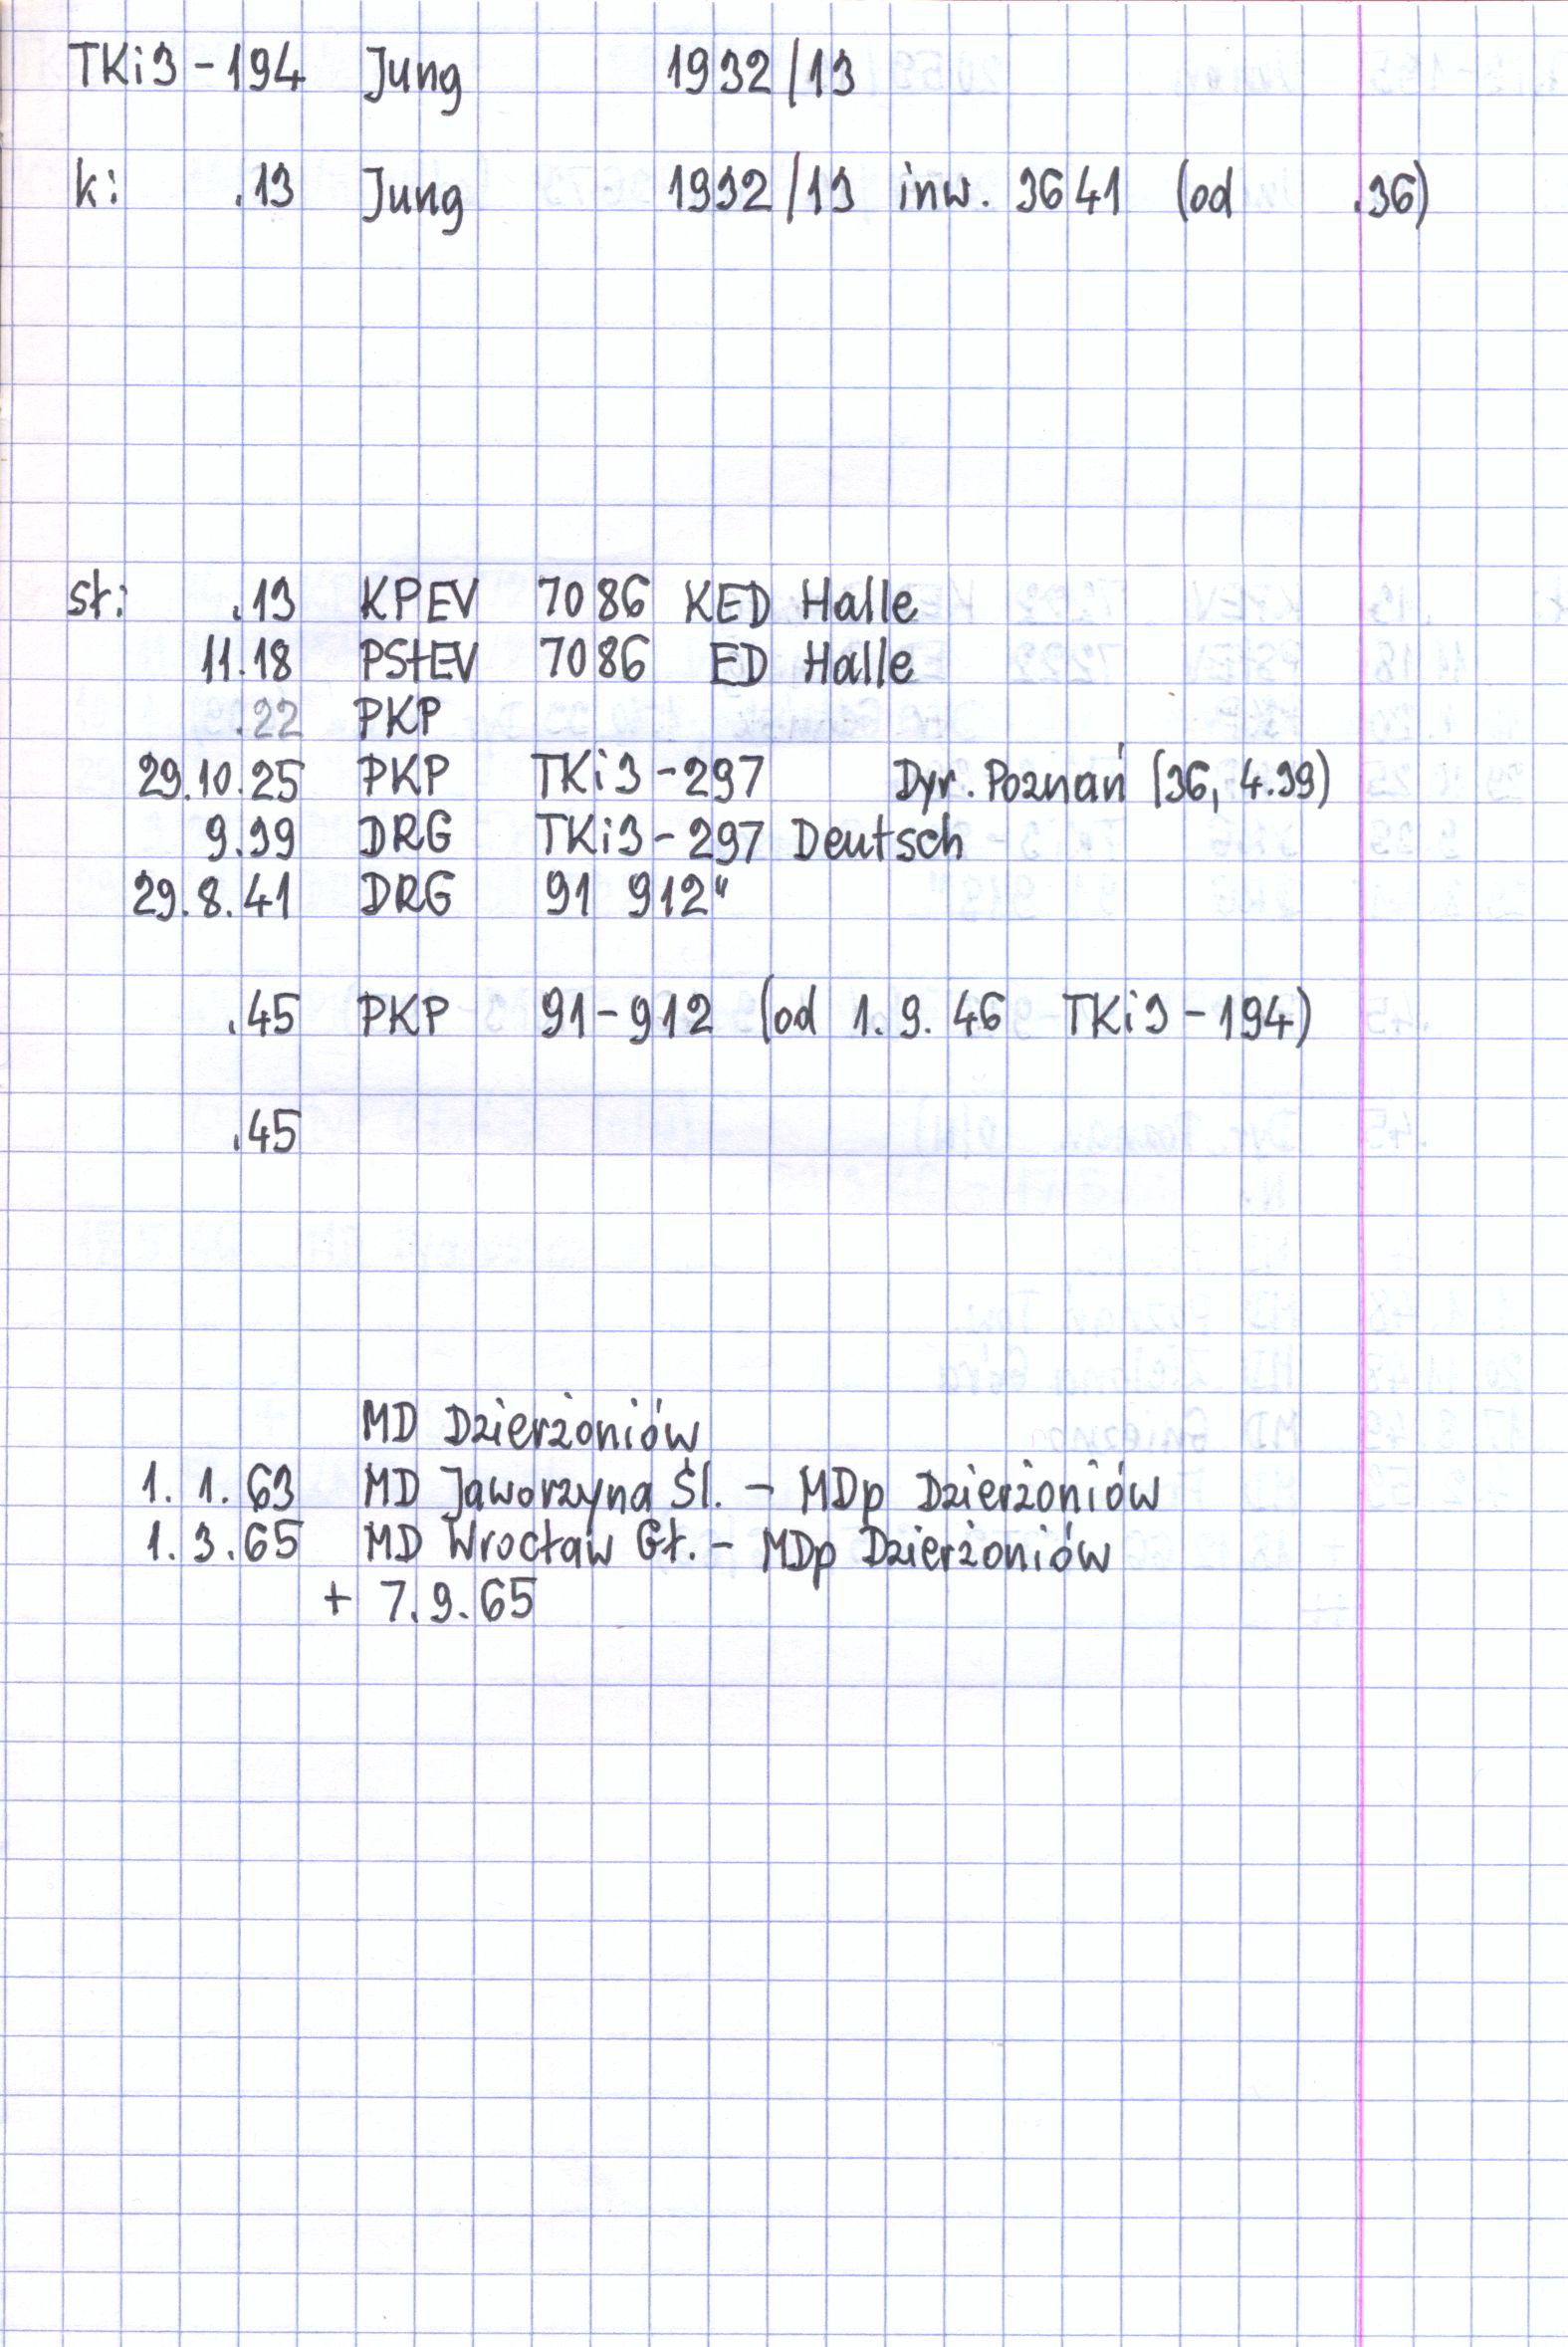 TKi3-194 Jung 1932/13
k: .13 Jung 1932/13 inw. 3641 (od .36)
st: .13 KPEV 7086 KED Halle
11.18 PStEV 7086 ED Halle
.22 PKP
29.10.25 PKP TKi3-297 Dyr. Poznań (36, 4.39)
9.39 DRG TKi3-297 Deutsch
29.8.41 DRG 91 912"
.45 PKP 91-912 (od 1.9.46 TKi3-194)
.45
MD Dzierżoniów
1.1.63 MD Jaworzyna Śl. - MDp Dzierżoniów
1.3.65 MD Wrocław Gł. - MDp Dzierżoniów
+ 7.9.65